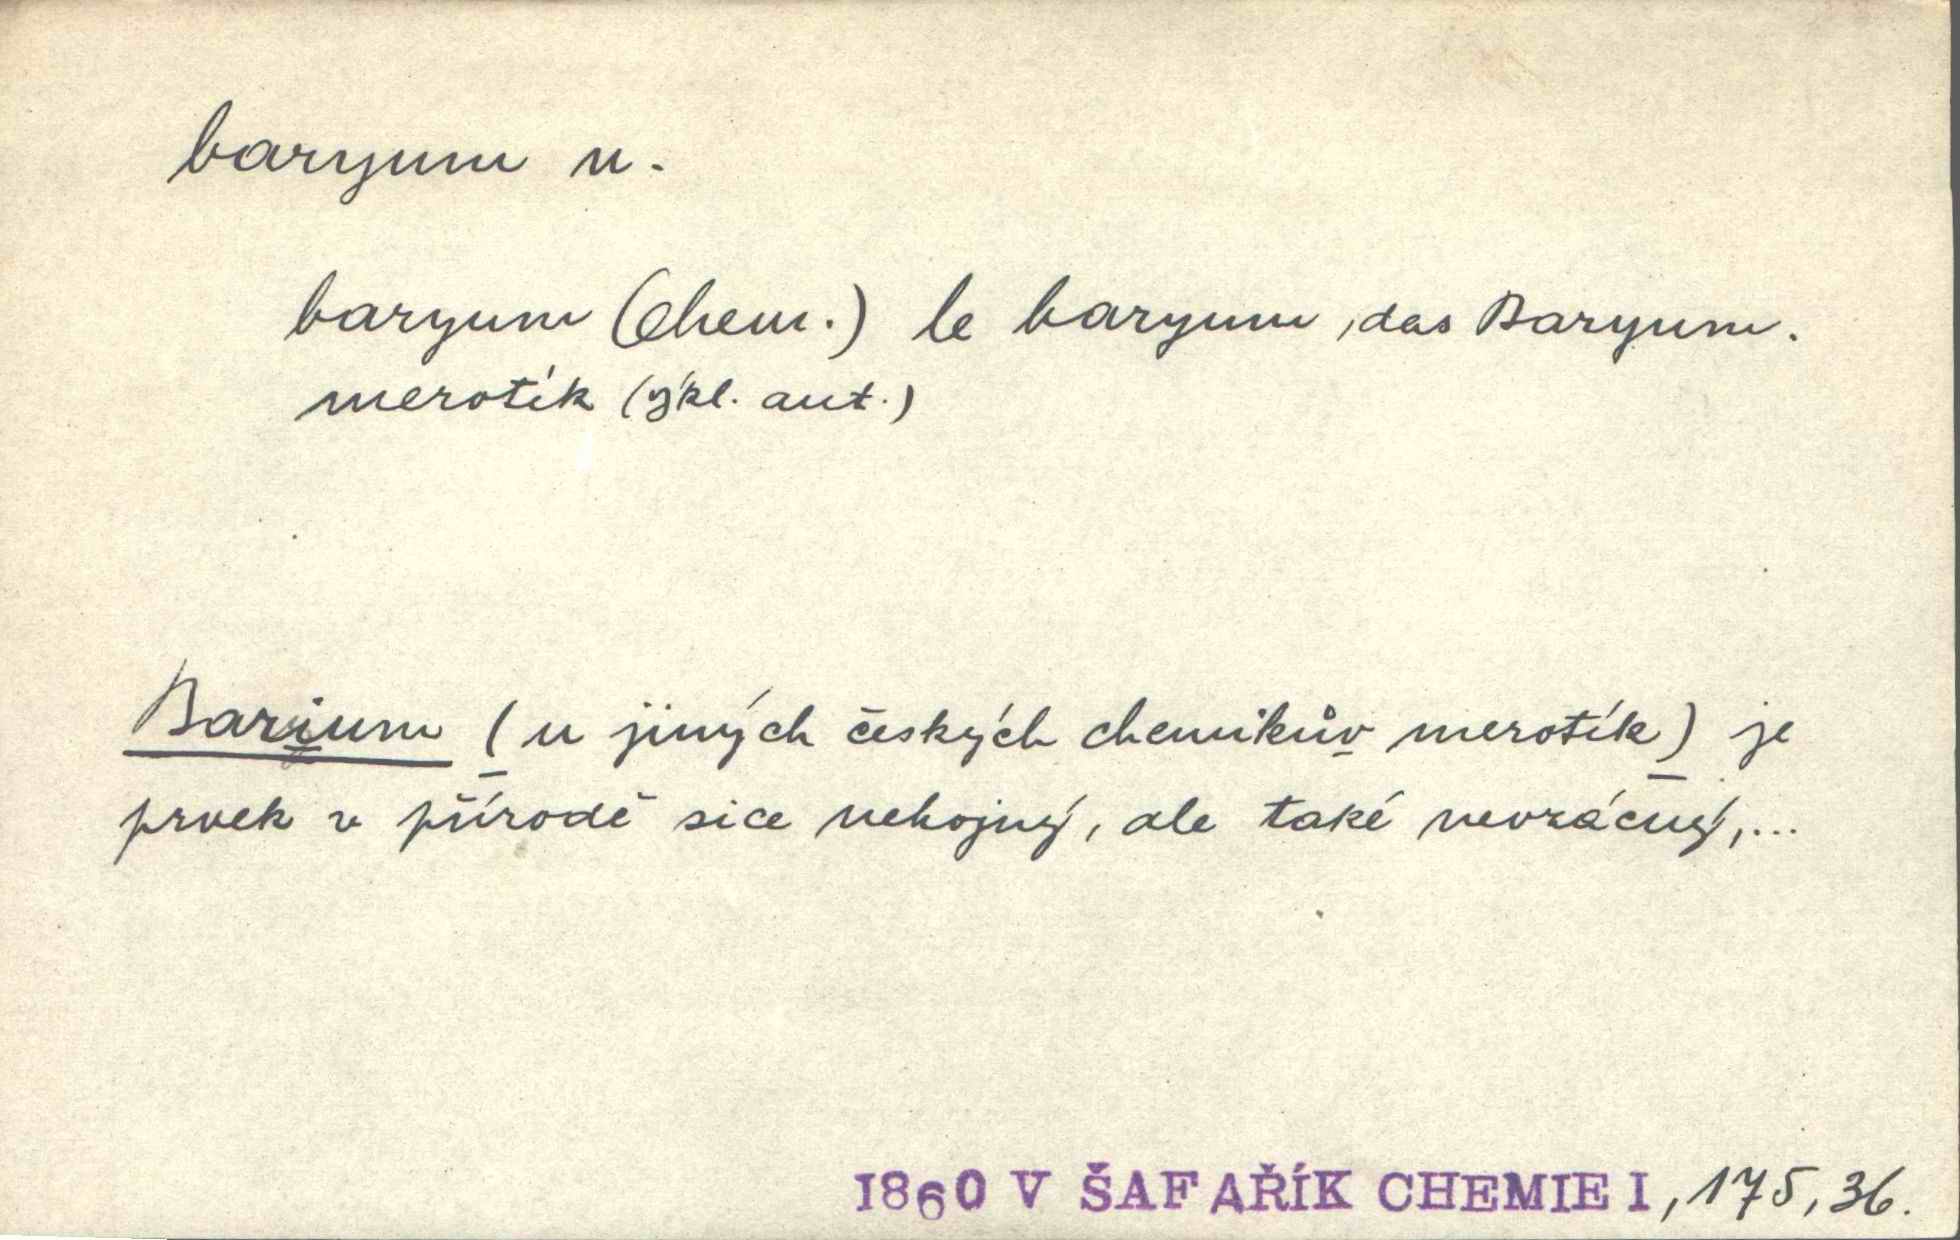 baryum n.
baryum (Chem.) le baryum, das Baryum.
merotík (výkl. aut.)
Barium (u jiných českých chemikův merotík) je
prvek v přírodě sice nehojný, ale také nevzácný,...
1860 V ŠAFAŘÍK CHEMIE I, 175, 36.